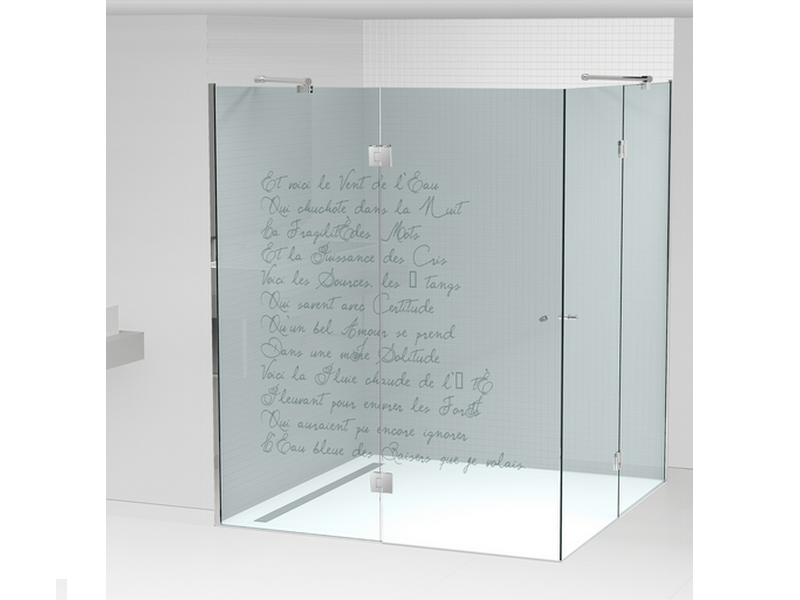 Et voici le Vent de l'Eau
Qui chuchote dans la Nuit
La FragilitÈdes Mots
Et la Puissance des Cris
Voici les Sources, les ▯ tangs
Qui savent avec Certitude
Qu'un bel Amour se prend
Dans une mÍme Solitude
Voici la Pluie chaude de l'▯ tÈ
Pleuvant pour enivrer les ForÍt
Qui auraient pu encore ignorer
L'Eau bleue des Baisers que je volais